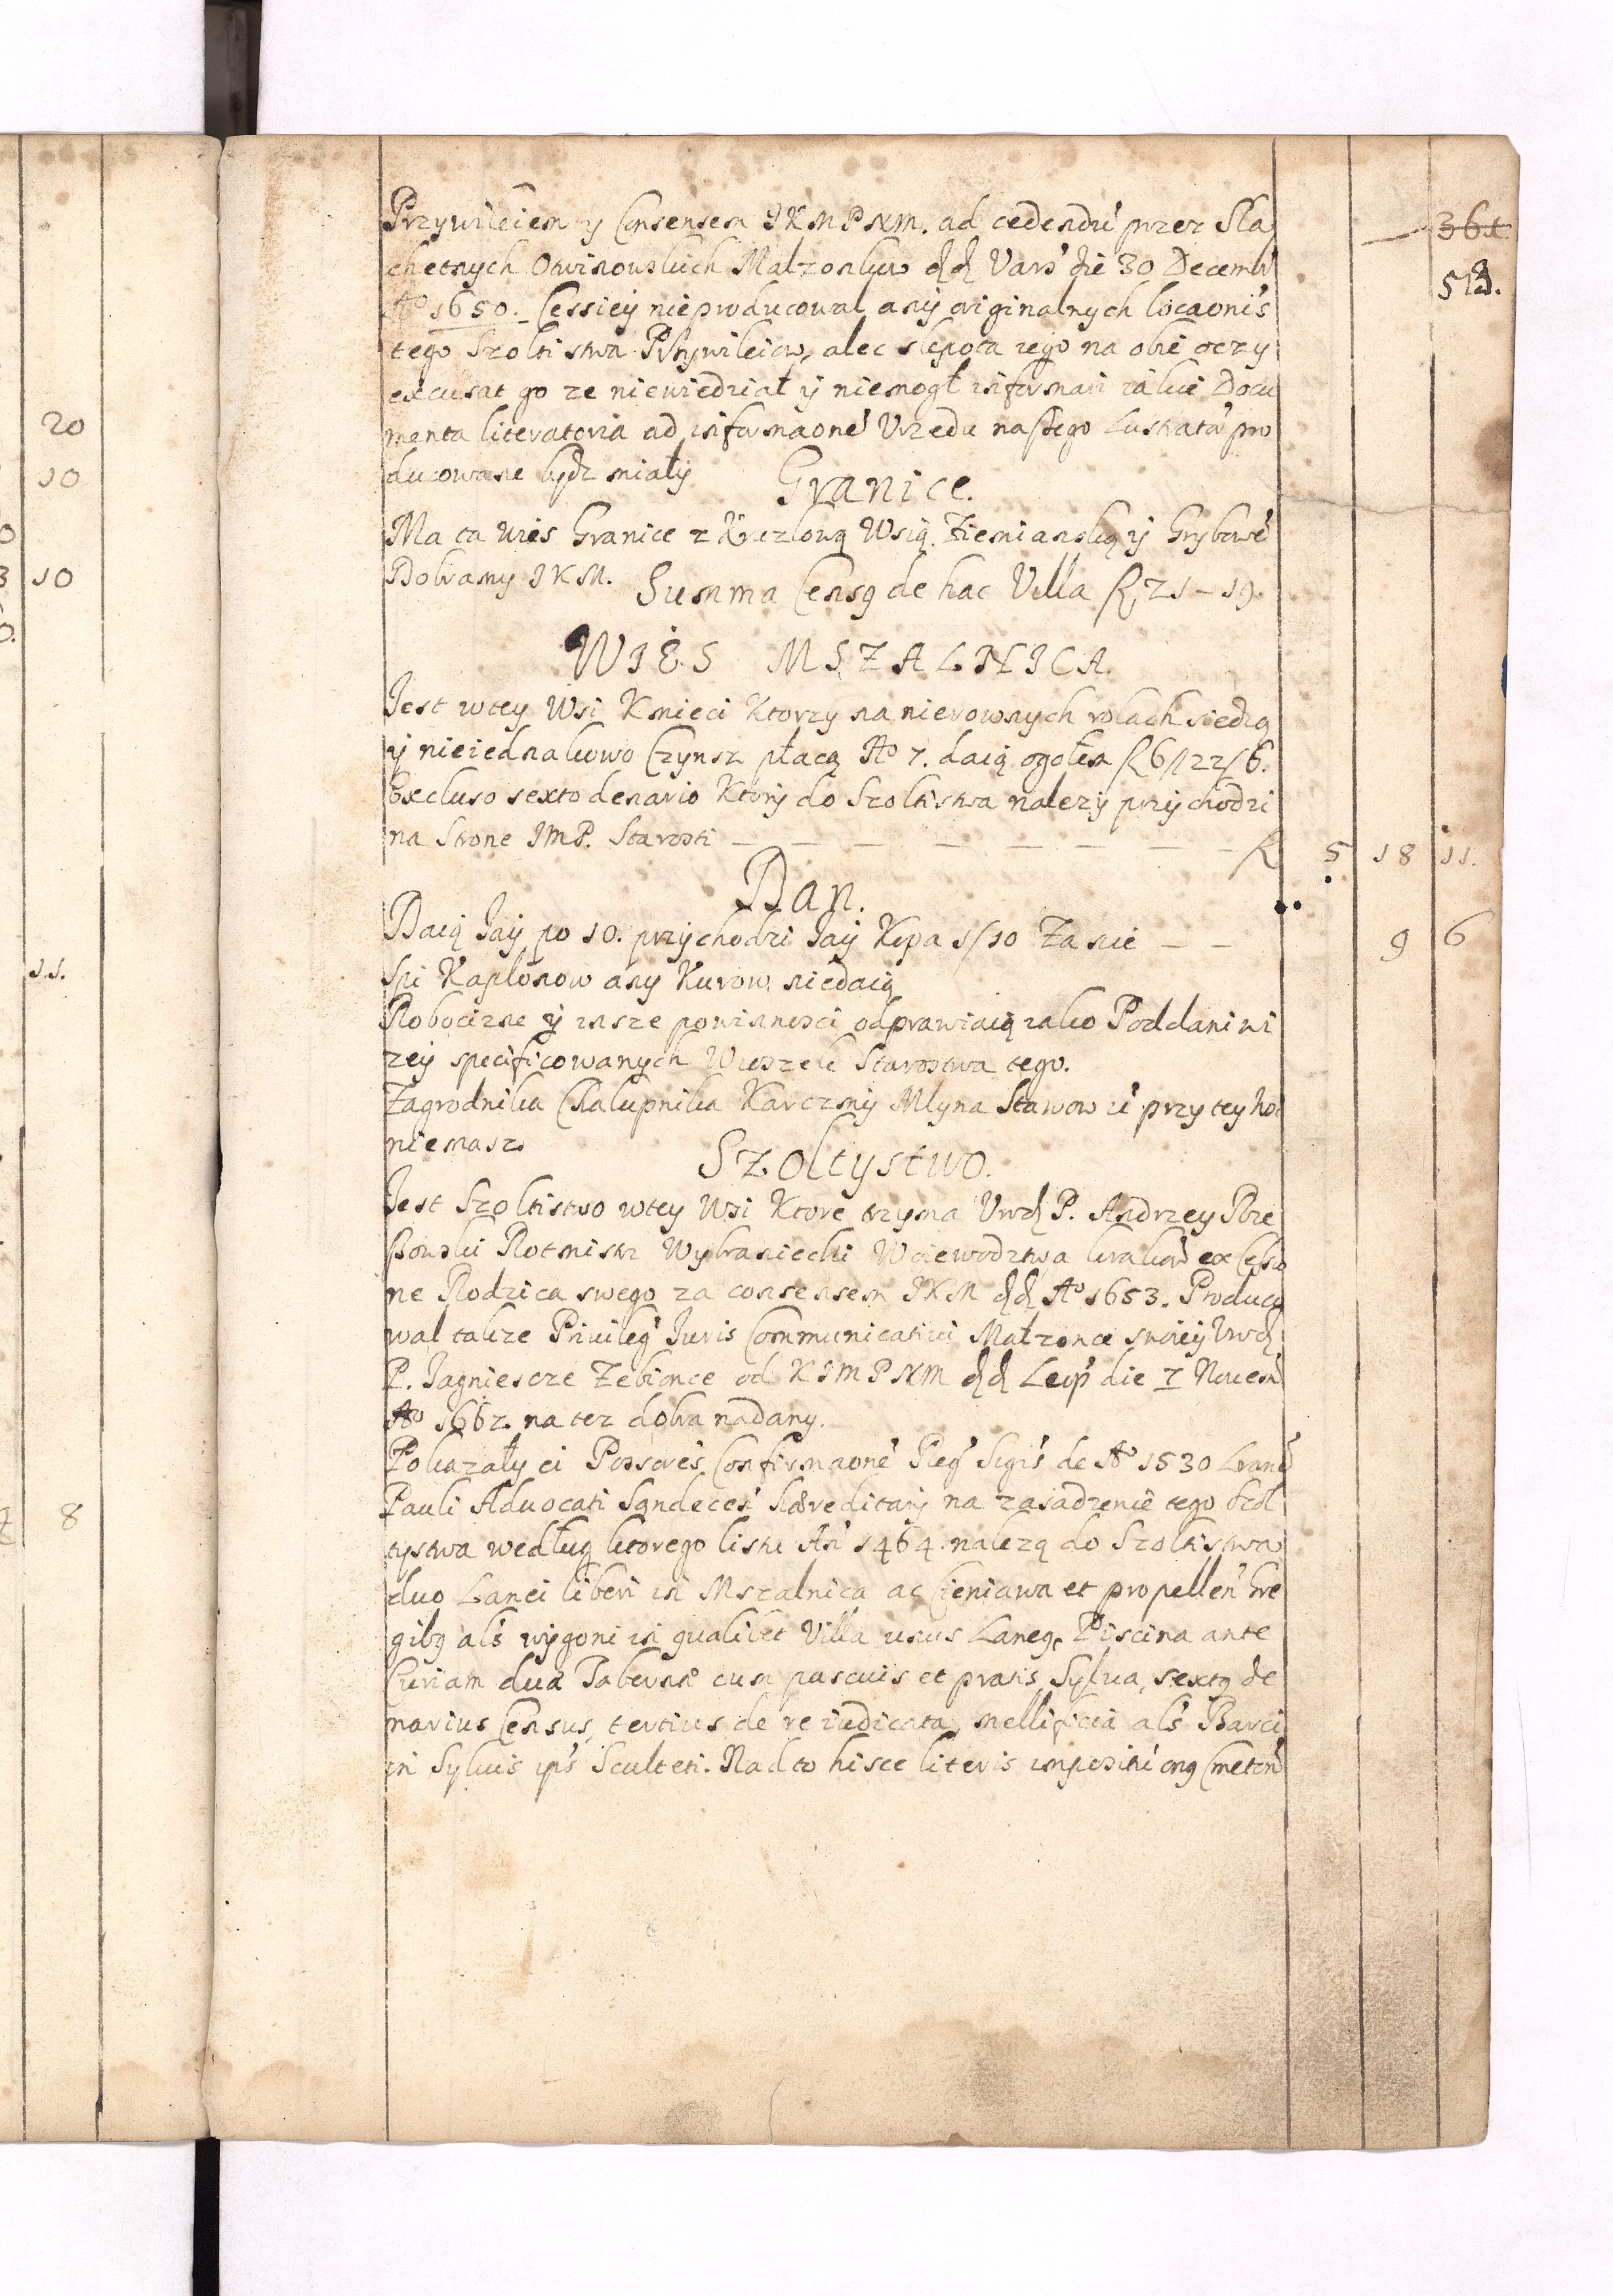 36t.
513.
Przywileiem y Consensem JKMPNM. ad cedendũ przez Sla
chetnych Otwinowskich Malzonkow dd Vars die 30 Decembr
Aº 1650. Cessiey nieproducowal any originalnych locaonis
tego Szoltistwa Przywileiow, alec slepota iego na obie oczy
excusat go ze niewiedział y niemogł informari iakie Docu
menta literatoria ad informaone Vrzedu naszego Lustrator pro
ducowane bydz miały
Granice.
Ma ta wies Granice z Kruzlową Wsią Ziemianską y Grybow
Dobramy JKM.
Summa Censq de hac Villa R 21 - 19.
WIES MSZALNICA.
Jest wtey Wsi Kmieci Ktorzy na nierownych rolach siedzą
y nieiednakowo Czynsz płacą Nº 7. daią ogołem R 6/22/6.
Excluso sexto denario Ktory do Szoltistwa nalezy przychodzi
na Strone JMP. Starosti — — — — — — — R 5 18 11.
Dan.
Daią Jay po 10. przychodzi Jay Kopa 1/10 Za nie — — 9 6
Spi Kaplonow any Kurow niedaią
Robocizne y insze powinnosci odprawiaią iako Poddani wi
zey specificowanych Wioszek Starostwa tego.
Zagrodnika Chalupnika Karczmy Mlyna Stawow ij przy tey
niemasz
Szoltystwo.
Jest Szoltistwo wtey Wsi Ktore trzyma Vrod P. Andrzey
Rotmistrz Wybraniecki Woiewodztwa krakow ex Cessio
ne Rodzica swego za consensem JKM dd Aº 1653. Produco
wal takze Privileg Juris Communicativi Małzonce swoiey Vrod
P. Jagniescze od KJMPNM dd die 7 Novem
Aº 1662. na tez dobra nadany.
Pokazały ci Possores Confirmaone Reg Sigis de Aº 1530
Pauli Advocati Sandeceň Hæreditarij na zasadzenie tego Szol
tystwa według ktorego listu An 1464. nalezą do Szoltistwa
duo Lanei liberi in Mszalnica ac Cieniawa et propellen Gre
gibq als wygoni in qualibet Villa unus Laneq. Piscina ante
Curiam duæ Tabernæ cum pascuis et pratis, Sylva, sextq de
narius Census, tertius de re iudicata, mellificia als Barci
in Sylvis ips Sculteti. Nad to hisce literis impositi onq Cmeton